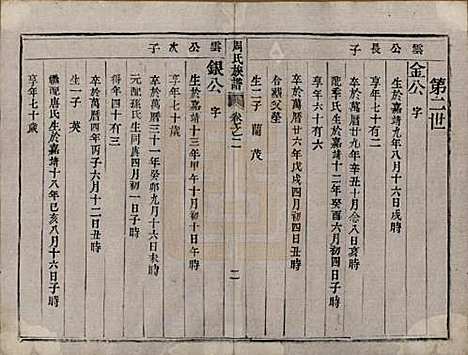 第二世
雲公長子
金公 字
生於嘉靖九年八月十六日戌時
卒於萬曆二十九年辛丑十月叁八日子時
享年七十二
配季氏生於嘉靖十二年癸酉六月初四日子時
卒於萬曆廿六年戊戌四月初四日丑時
合塟父塋
享年六十六
生二子 蘭 茂
周氏族譜 卷之二 二
雲公次子
銀公 字
生於嘉靖十三年甲午十月初十日午時
享年七十歲
卒於萬曆三十一年癸卯九月十六日時
元配孫氏生同嘉四月初一日
得年四十有三
卒於萬曆四年丙子六月十二日丑時
生一子 英
繼配唐氏生於嘉靖十八年己亥八月十六日子時
享年七十歲